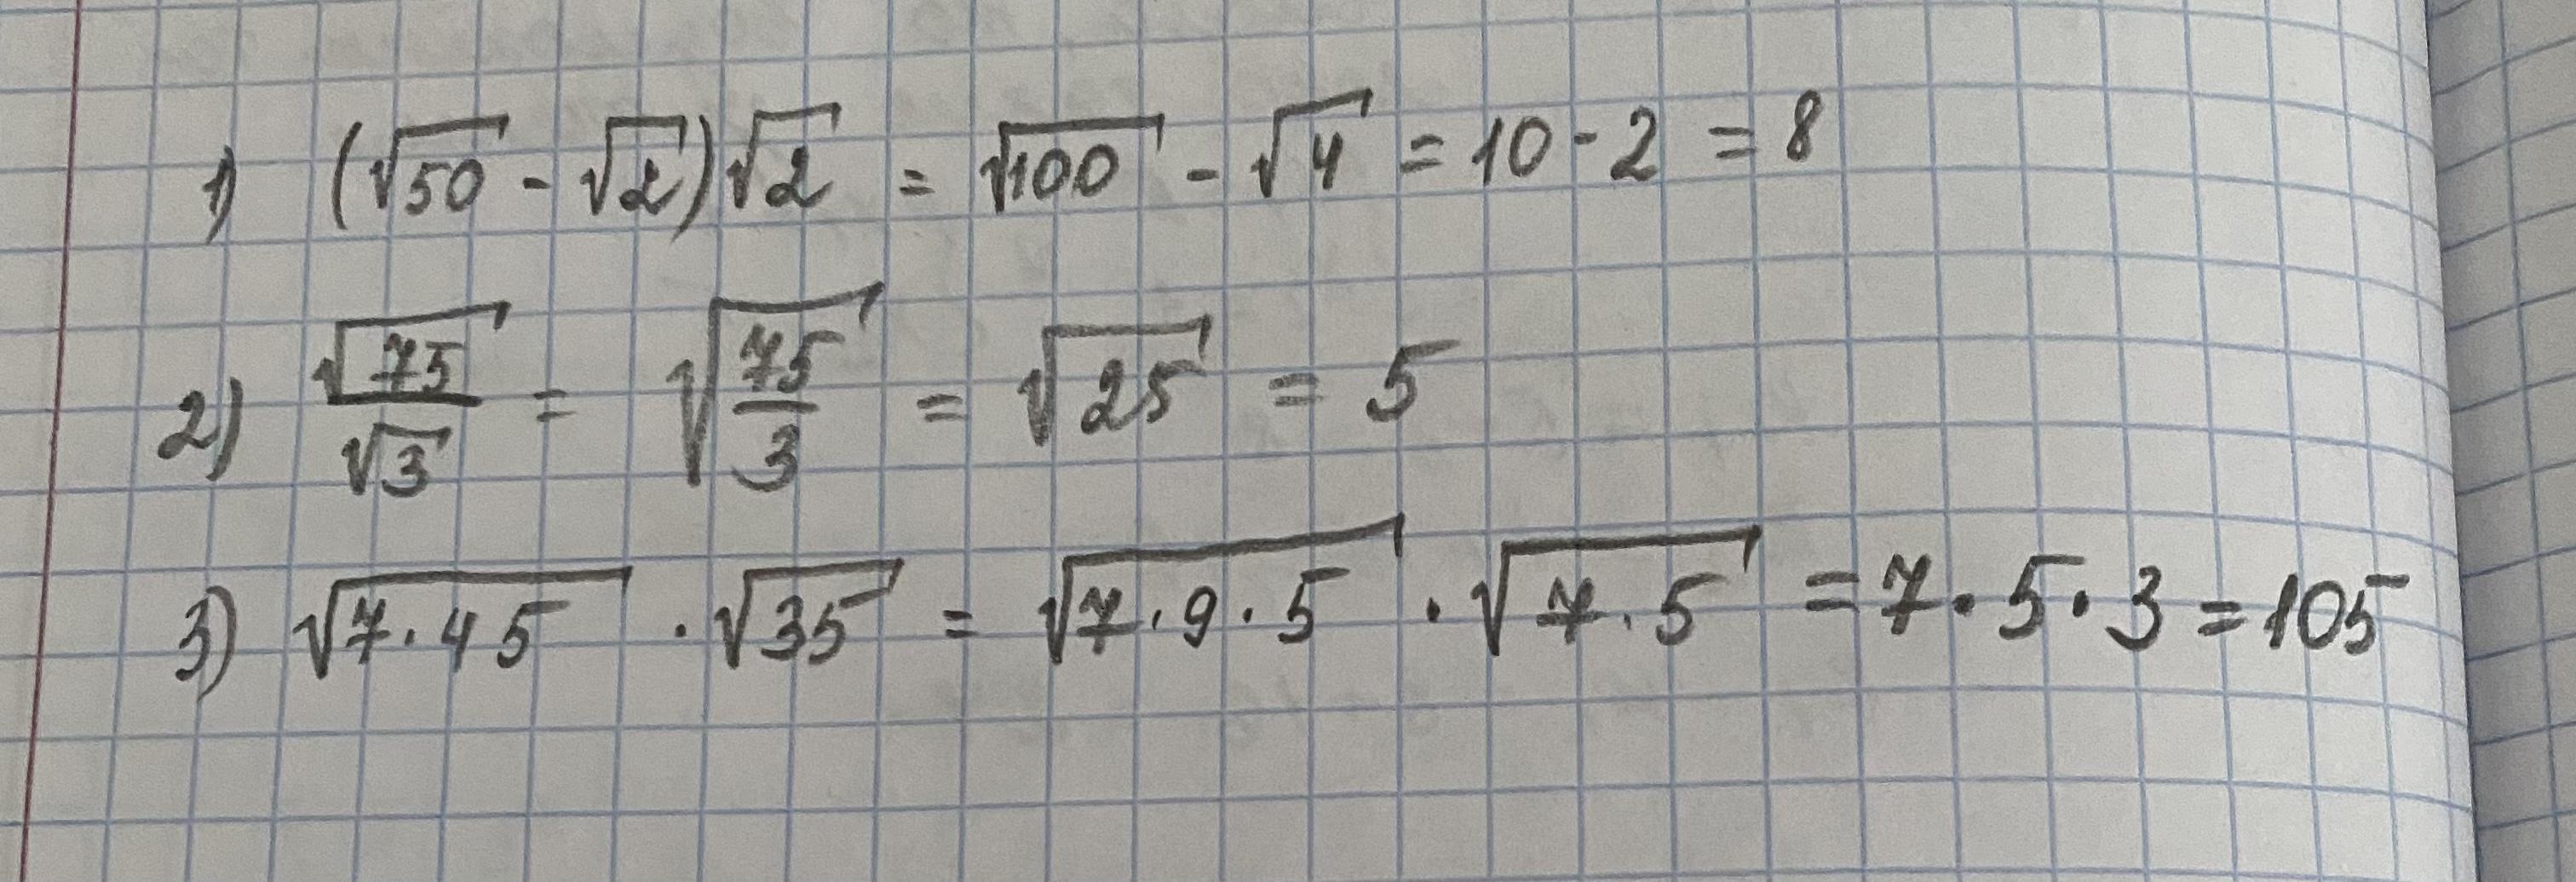 1) (√50 - √2)√2 = √100 - √4 = 10 - 2 = 8
2) √75/√3 = √(75/3) = √25 = 5
3) √(7·45) · √35 = √(7·9·5) · √(7·5) = 7·5·3 = 105